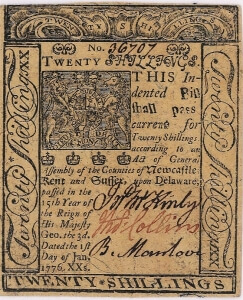 TWENTY SHILLINGS.
No. 36707
TWENTY SHILLINGS.
THIS In-
dented Bill
shall pass
current for
Twenty Shillings
according to an
Act of General
Assembly of the Counties of Newcastle
Kent and Sussex, upon Delaware,
passed in the
15th Year of
the Reign of
His Majesty
Geo. the 3d.
Dated the 1st
Day of Jan.
1776. XXs.
Thos Collins
B. Manlove
Twenty Shillings xx
Twenty Shillings xx
TWENTY SHILLINGS